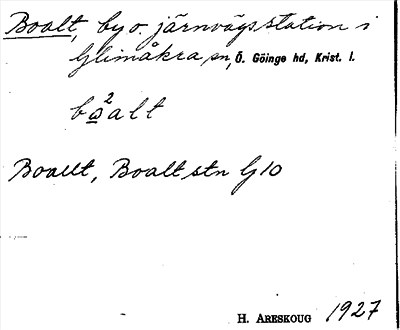 Boalt, by o. järnvägsstation i
Glimåkra sn, Ö. Göinge hd, Krist. l.
bo²alt
Boallt, Boalt stn G 10
H. ARESKOUG 1927